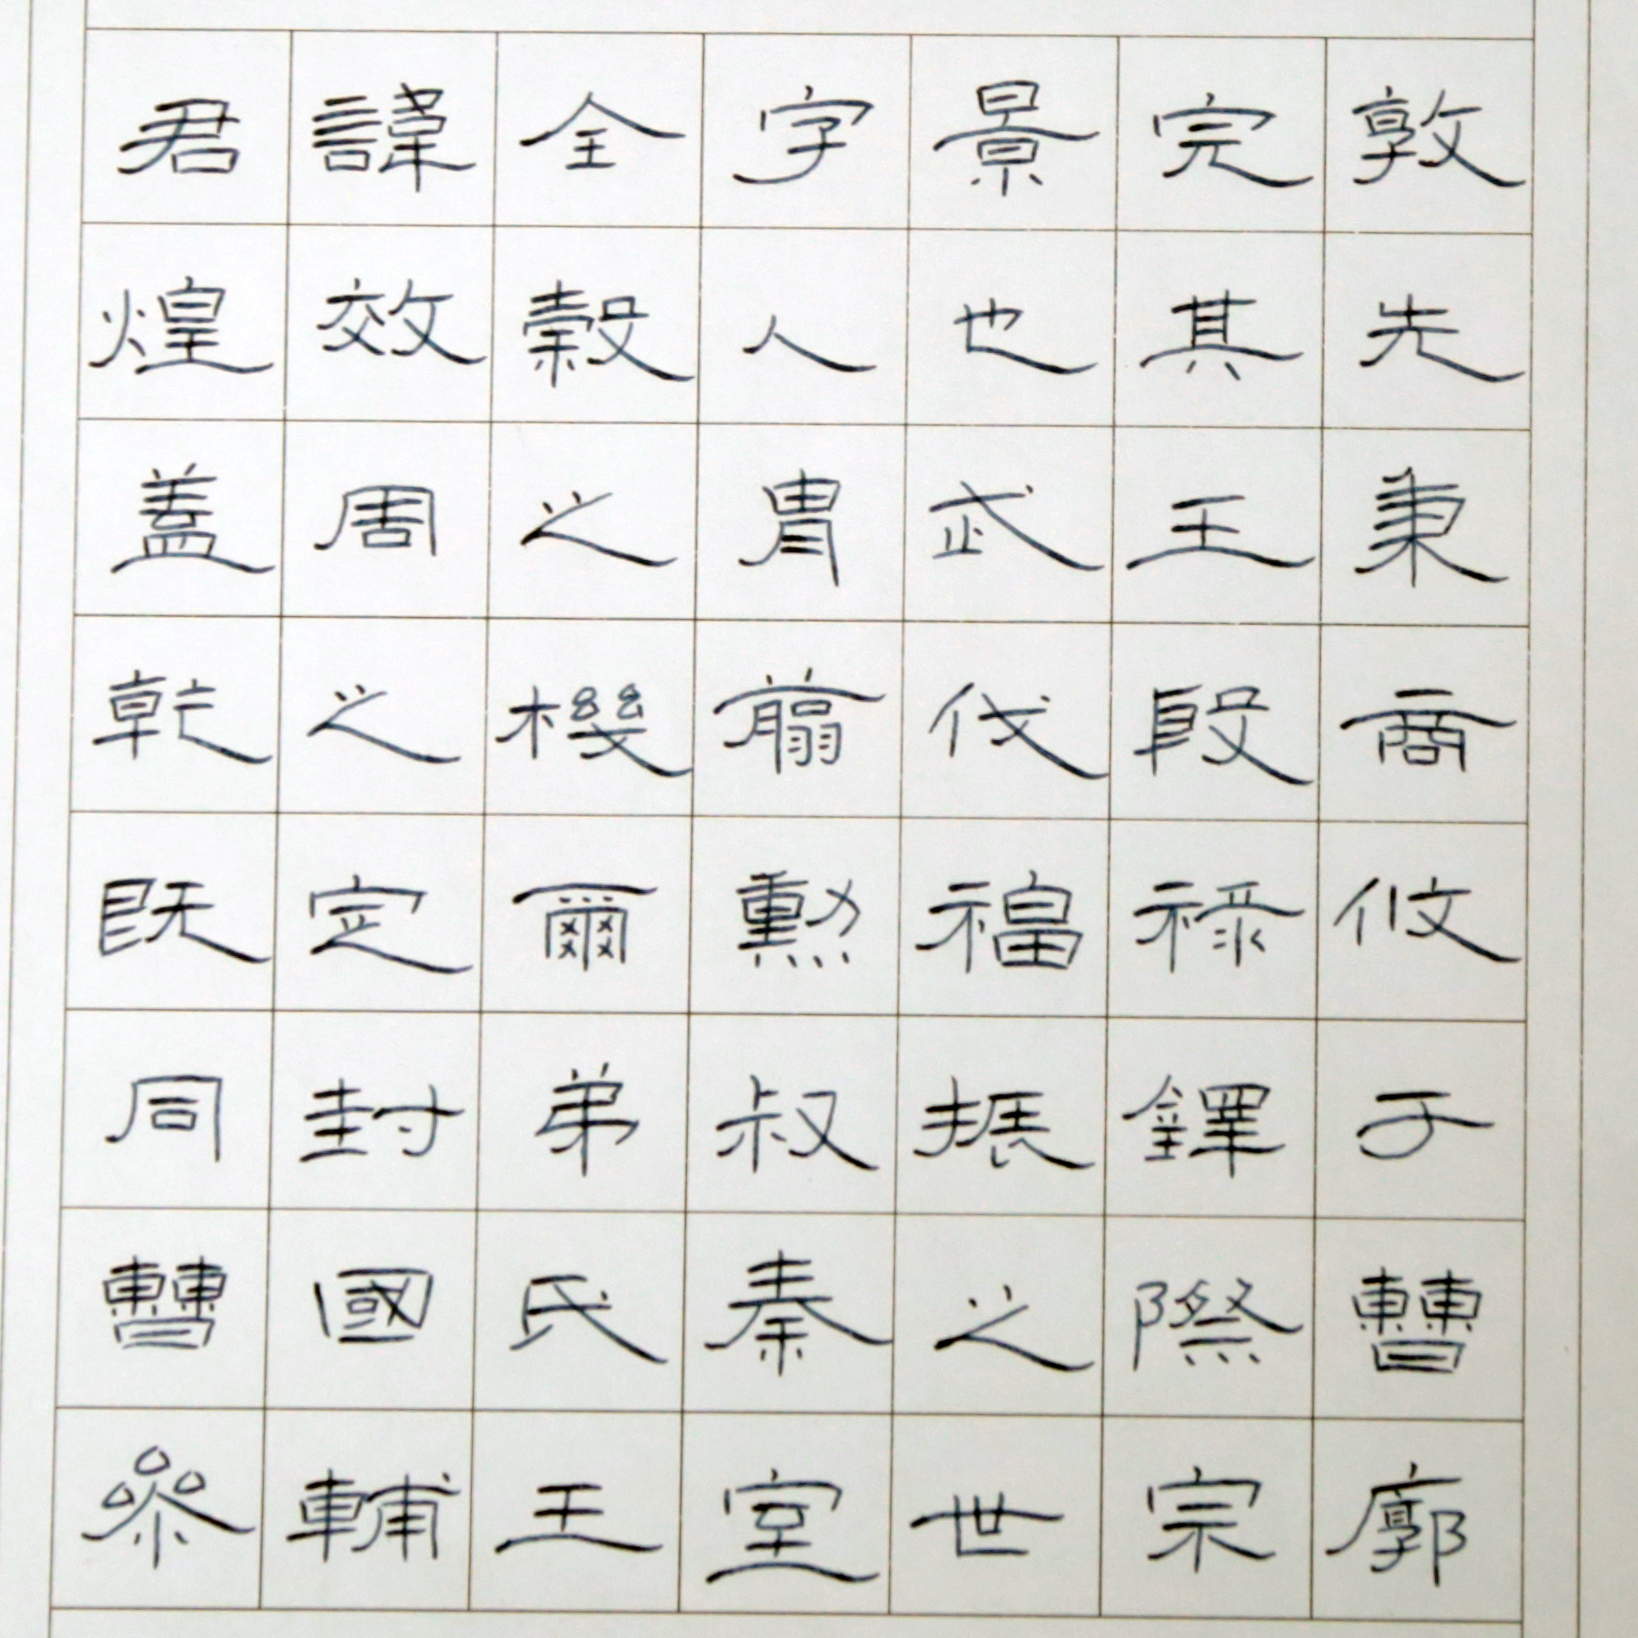 君諱全字景完敦
煌效穀人也其先
蓋周之胄武王秉
乾之機翦伐殷商
既定爾勳福祿攸
同封弟叔振鐸于
曹國氏秦之際曹
參輔王室世宗廓